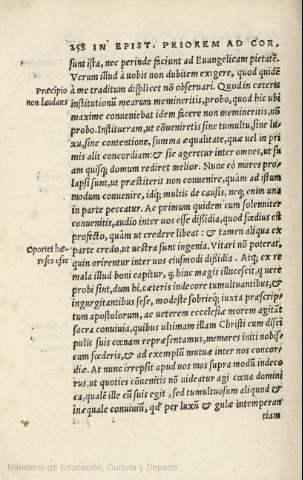 258 IN EPIST. PRIOREM AD COR.
sunt ista, nec perinde faciunt ad Euangelicam pietatẽ.
Verum illud à uobis non dubitem exigere, quod quidẽ
Præcipio à me traditum displicet nõ obseruari. Quod in cæteris
non laudans institutionũ mearum memineritis, probo, quod hic ubi
maxime conueniebat idem facere non memineritis, nõ
probo. Institueram, ut cõueniretis sine tumultu, sine lu-
xu, sine contentione, summa æqualitate, quæ uel in pri
mis alit concordiam: & sic ageretur inter omnes, ut su
am quisq; domum rediret melior. Nunc eò mores pro-
lapsi sunt, ut præstiterit non conuenire, quàm ad istum
modum conuenire, idq; multis de causis, necq; enim una
in parte peccatur. Ac primum quidem cum solenniter
conuenitis, audio inter uos esse dissidia, quod fœdius est
profecto, quàm ut credere libeat: & tamen aliqua ex
Oportet hæ- parte credo, ut uestra sunt ingenia. Vitari nõ poterat,
reses esse quin orirentur inter uos eiusmodi dissidia. Atq; ex re
mala illud boni capitur, q. hinc magis illucescit, qui uere
probi sint, dum hi, cæteris indecore tumultuantibus, &
ingurgitantibus sese, modeste sobrieq; iuxta præscrip-
tum apostolorum, ac ueterem ecclesiæ morem agitãt
sacra conuiuia, quibus ultimam illam Christi cum disci
pulis suis cœnam repræsentamus, memores initi nobis-
cum fœderis, & ad exemplũ mutuæ inter nos concor-
diæ. At nunc irrepsit apud uos mos supra modũ indeco
rus, ut quoties cõuenitis nõ uideatur agi cœna domini
ca, qualẽ ille cũ suis egit, sed tumultuosum aliquod &
inæquale conuiuiũ, qď per luxũ & gulæ intemperan
tiam
Ministerio de Educación, Cultura y Deporte